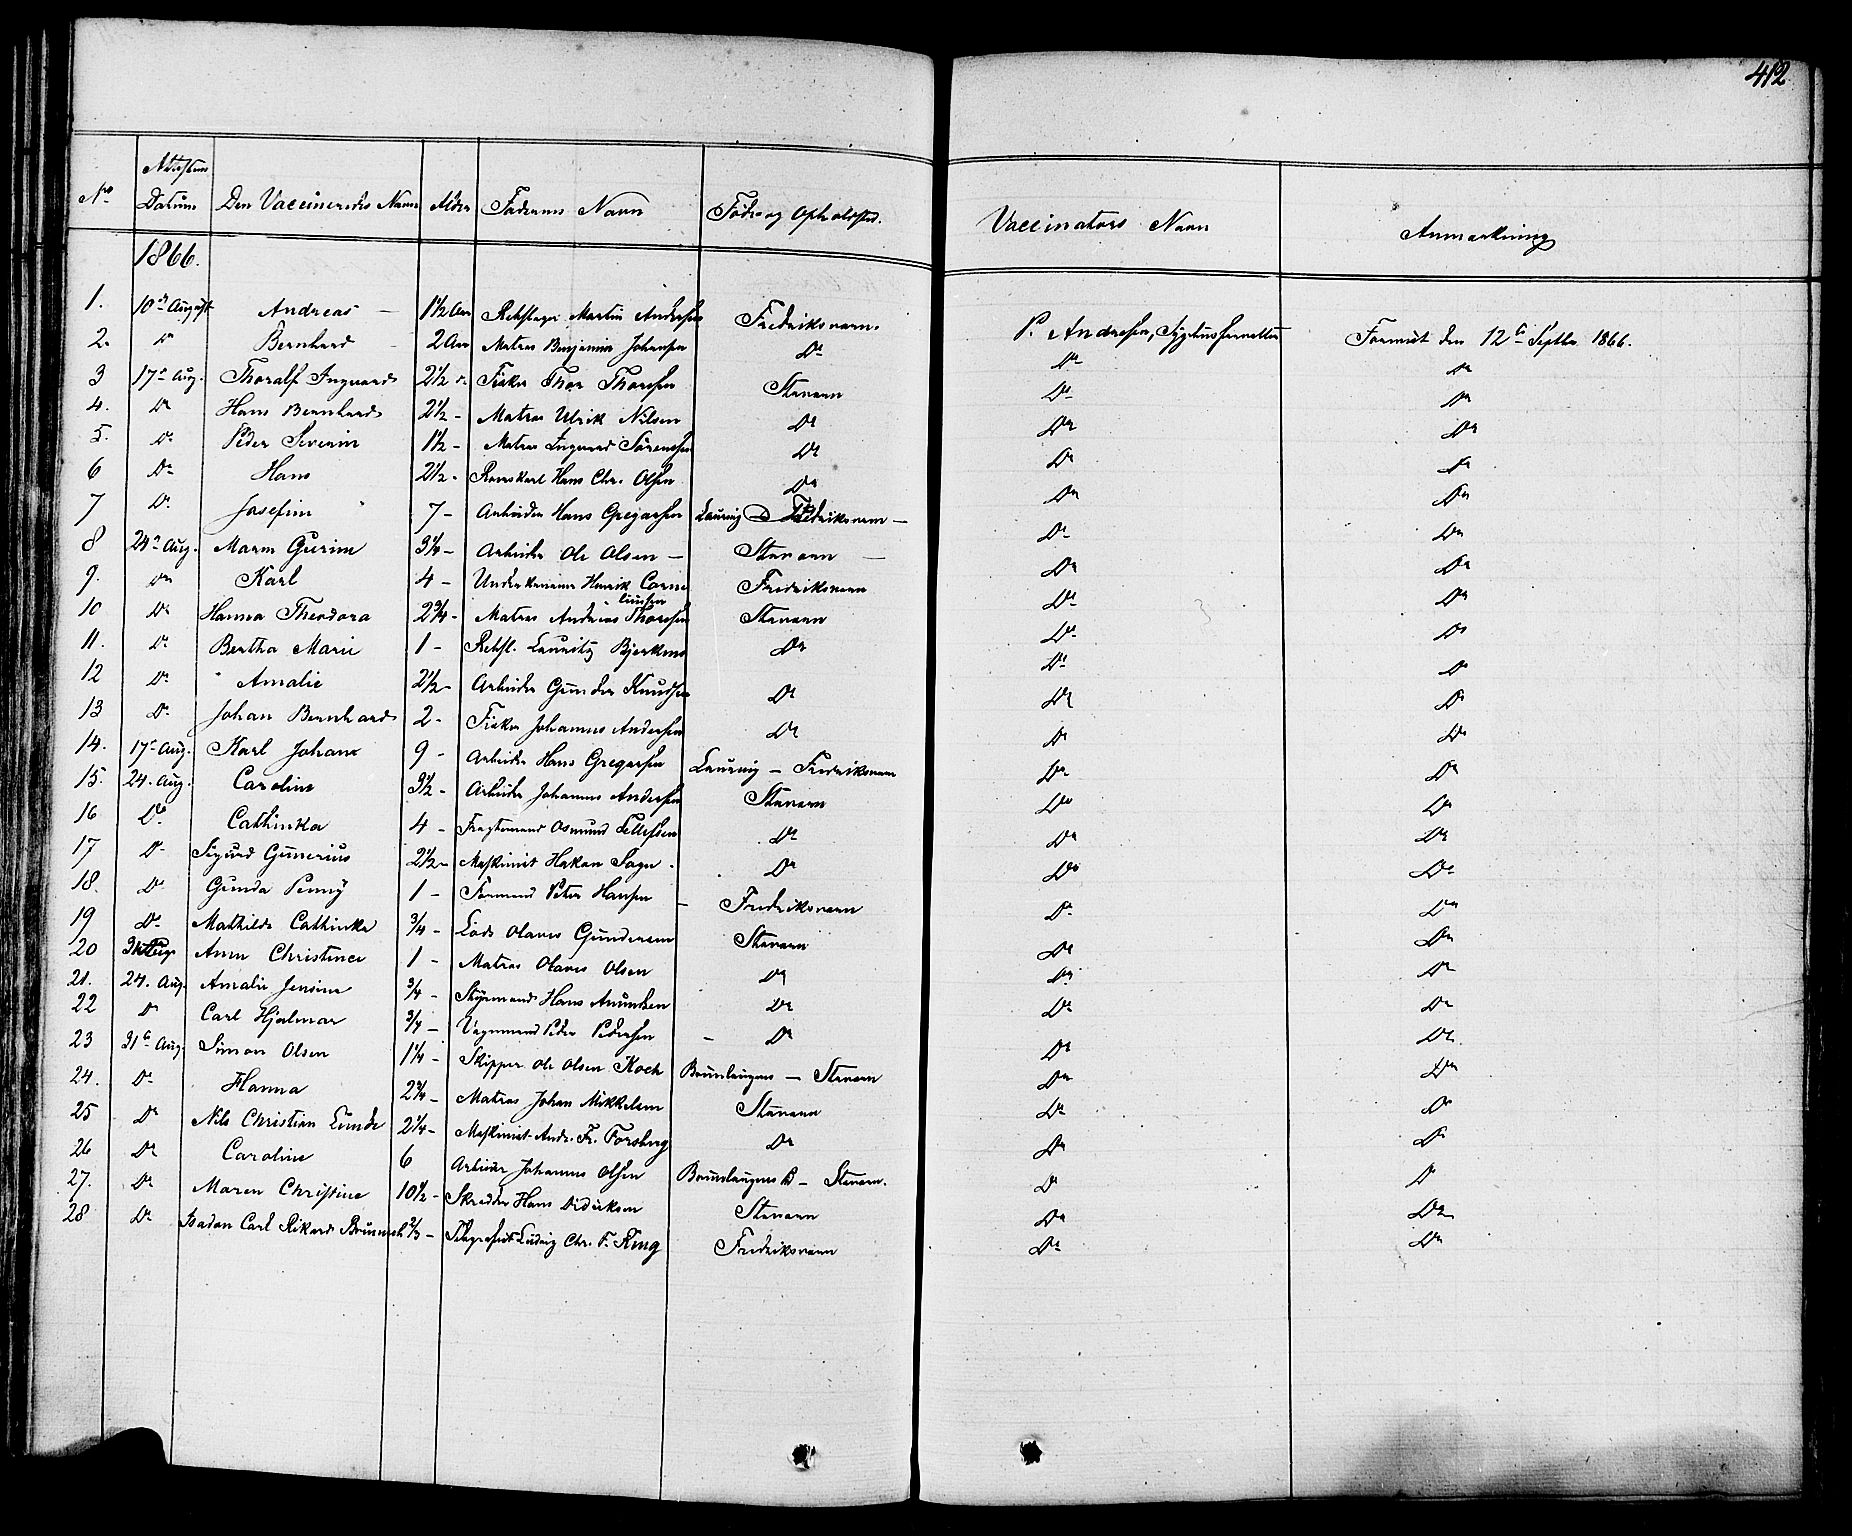 412.
No Attestens Datum Den Vaccineredes Navn Alder Faderens Navn Føde og Opholdsted. Vaccinators Navn Anmærkning
1866.
1. 10de August Andreas 1 1/2 Aar Rebslager Martin Andersen Fredriksværn. P. Andresen, Formist den 12te Septbr. 1866.
2. Do Bernhard 2 Aar Matros Benjamin Johansen Do Do Do
3 17de Aug. Thoralf Ingvard 2 1/2 Do Fisker Thor Thorsen Stavern Do Do
4. Do Hans Bernhard 2 1/2 - Matros Ulrik Nilsen Do Do Do
5. Do Peder Severin 1 1/2 - Matros Ingvard Sørensen Do Do Do
6 Do Hans 2 1/2 - Hans Chr. Olsen Do Do Do
7 Do Josefine 7 - Arbeider Hans Gregersen Laurvig - Fredriksværn - Do Do
8 24de Aug. Maren Gurine 3 1/4 - Arbeider Ole Olsen - Stavern - Do Do
9. Do Karl 4 - Underkanoner Henrik Corneliussen Fredriksværn Do Do
10 Do Hanna Theodora 2 3/4 - Matros Andreas Thorsen Stavern Do Do
11. Do Bertha Marie 1 - Rebsl. Lauritz Bjerknes Do Do Do
12 Do Amalie 2 1/2 - Arbeider Gunder Knudsen Do Do Do
13 Do Johan Bernhard 2 - Fisker Johannes Andersen Do Do Do
14. 17de Aug. Karl Johan 9 - Arbeider Hans Gregersen Laurvig - Fredriksværn Do Do
15. 24. Aug. Caroline 3 1/2 - Arbeider Johannes Andersen Stavern Do Do
16 Do Cathinka 4 - Fragtemand Osmund Tellefsen Do Do Do
17 Do Sigurd Gunerius 2 1/2 - Maskinist Hakon Do Do Do
18. Do Gunda Penny 1 - Formand Peter Hansen - Fredriksværn Do Do
19 Do Mathilde Cathinka 3/4 - Lods Olaves Gundersen Stavern Do Do
20 Ane Christine 1 - Matros Olaves Olsen Do Do Do
21. 24. Aug. Amalie Jensine 3/4 - Styrmand Hans Anundsen Do Do Do
22 Do Carl Hjalmar 3/4 - Vognmand Peder Pedersen - Do Do Do
23 31te Aug. Simon Olsen 1 1/4 - Skipper Ole Olsen Koch Brunlaugnes - Stavern Do Do
24. Do Hanna 2 3/4 - Matros Johan Mikkelsen Stavern Do Do
25 Do Nils Christian Lunde 2 1/4 - Maskinist Andr. Fr. Forsberg Do Do Do
26 Do Caroline 6 Arbeider Johannes Olsen Brunlaugnes - Stavern. Do Do
27. Do Maren Christine 10 1/2 - Skredder Hans Didriksen Stavern Do Do
28 Do Carl Rikard 2/3 - Telegrafist Ludvig Chr. F. Ring Fredriksværn Do Do